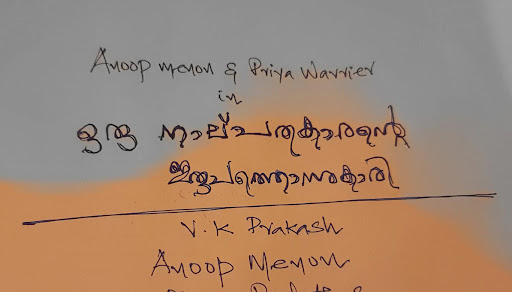 Anoop menon & Priya Warrier
in
ഒരു നാല്പതുകാരന്റെ
ഇരുപത്തൊന്നുകാരി
V.K Prakash
Anoop Menon